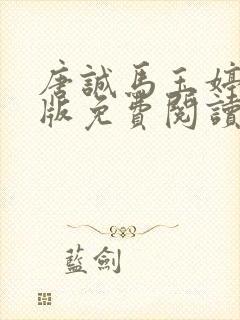 唐誠馬玉婷
版免費閱讀
藍劍